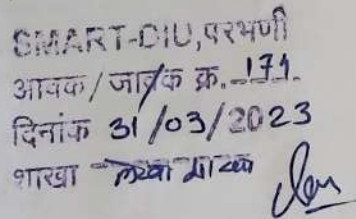 SMART-DIU, परभणी
आवक/जावक क्र. 171
दिनांक 31/03/2023
शाखा लेखा शाखा